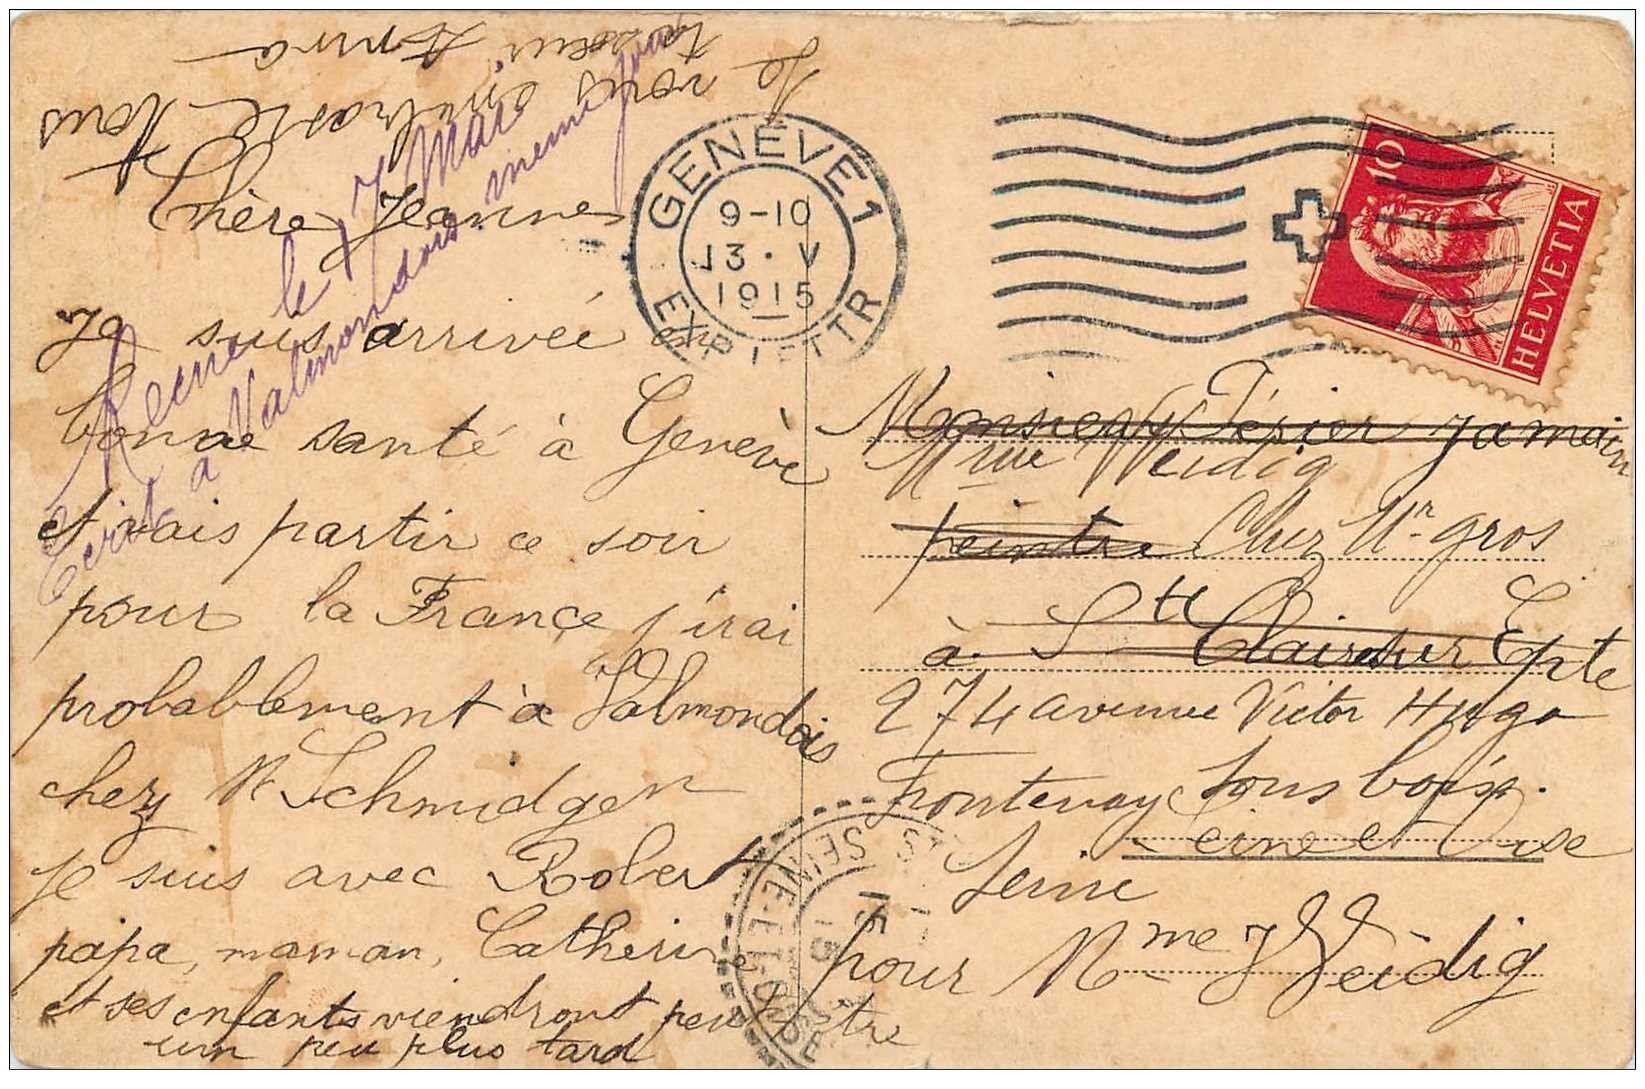 Chère Jeanne
Je suis arrivée en
bonne santé à Genève
et vais partir ce soir
pour la France j'irai
probablement à Valmondois
chez Mr Schmidger
je suis avec Robert
papa, maman, Catherine
et ses enfants viendront peut être
un peu plus tard
Je vous embrasse tous
ta soeur Anna
Recue le 17 Mai
Ecrit à Valmondois meme jour
GENÈVE 1
9-10
13·V
1915
EXP. LETTR
10
HELVETIA
Monsieur Périer Jamain
Mme Weidig
peintre Chez Mr Gros
à Ste Clair sur Epte
274 avenue Victor Hugo
Fontenay sous bois.
Seine et Oise
Seine
pour Mme J Weidig
SEINE-ET-OISE
15
15